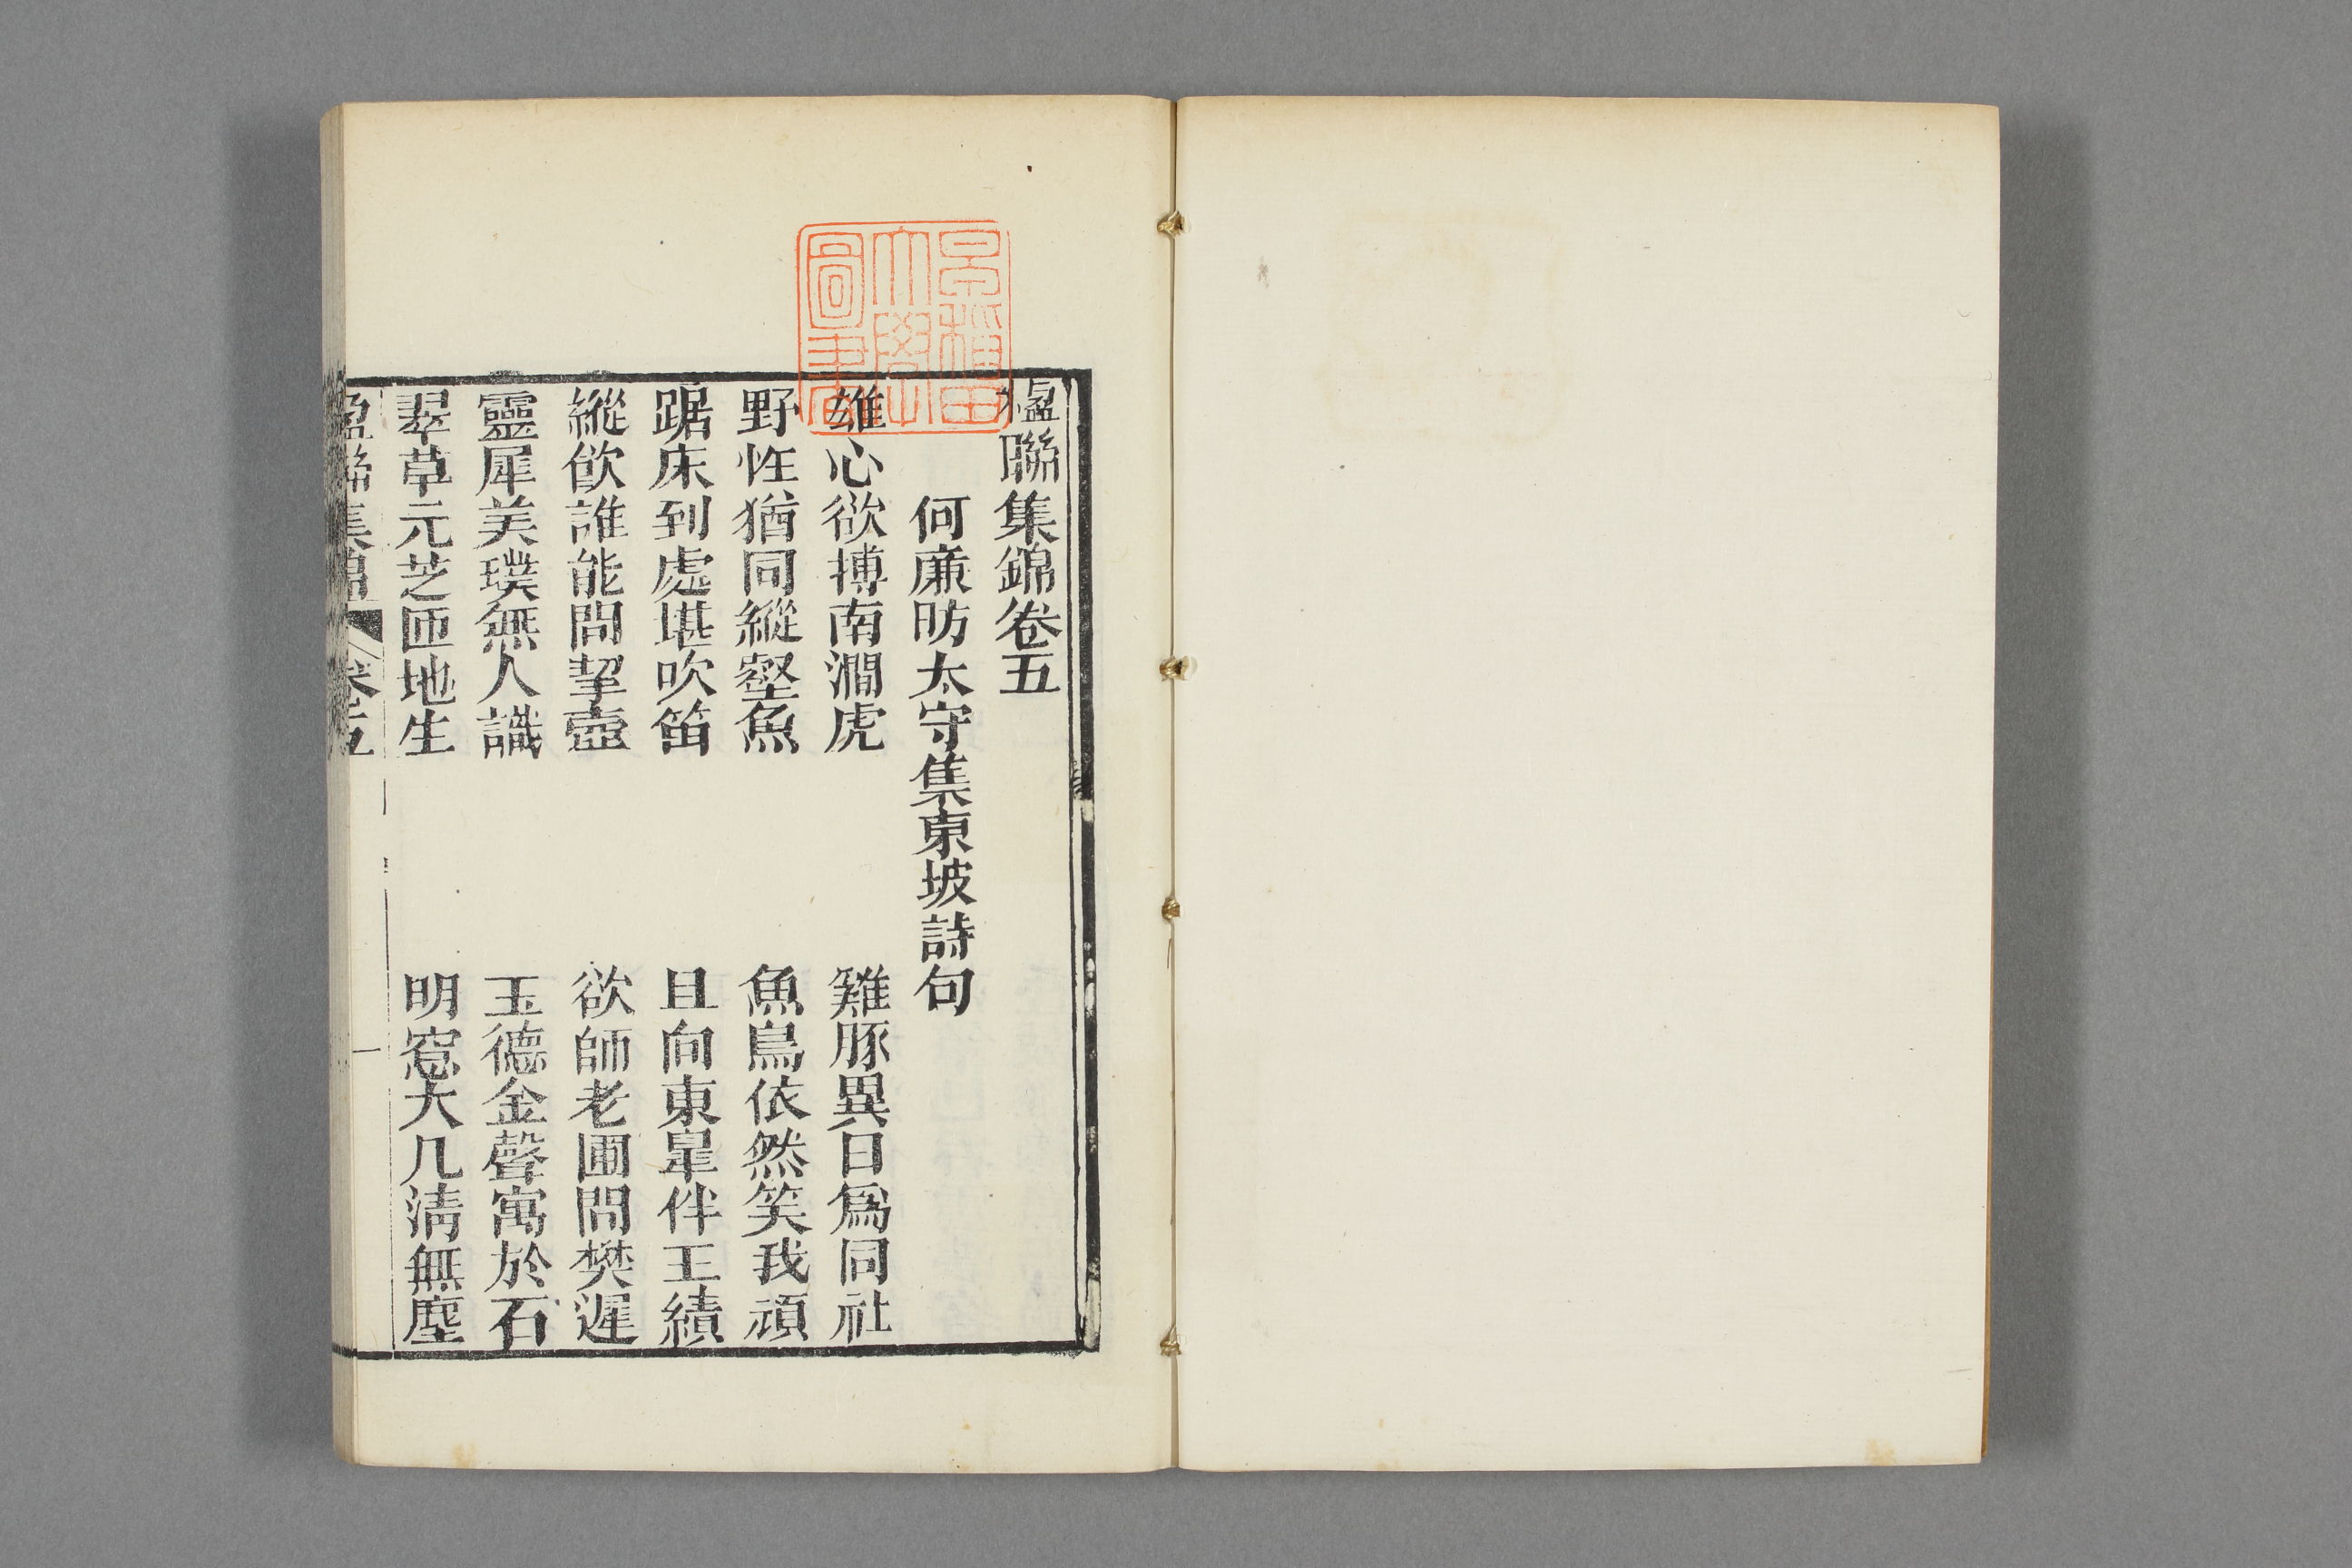 楹聯集錦卷五
何廉昉太守集東坡詩句
雄心欲搏南澗虎　雞豚異日爲同社
野性猶同縱壑魚　魚鳥依然笑我頑
踞床到處堪吹笛　且向東臯伴王績
縱飲誰能問挈壺　欲師老圃問樊遲
靈犀美璞無人識　玉德金聲寓於石
翠草元芝匝地生　明窓大几淸無塵
楹聯集錦　卷五　一
早稲田
大學
圖書